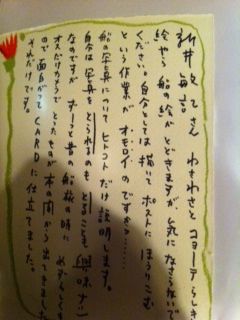 新井敏記さん わさわさとコヨーテらしき
絵やら 船の絵がとどきますが 気になさらないで
ください。自分としては 描いて ポストに ほうりこむ
という作業が オモロイのですから……
船の写真について ヒトコトだけ説明します。
自分は 写真を とられるのも とることも 興味ナシ
なのですが ずーっと昔の船旅の時に めずらしくも
オスだけのカオで とったものが 本の間から出てきました
ので面白がって CARDに仕立てました。
それだけです。